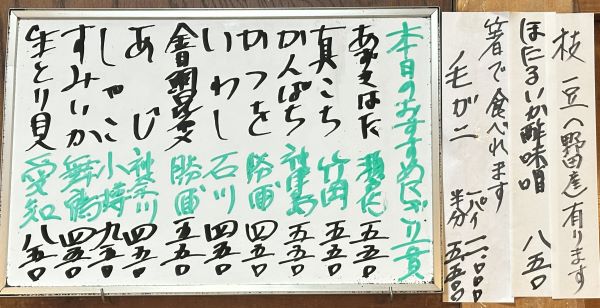 枝豆(野田産)有ります
ほたるいか酢味噌 八五〇
箸で食べれます
毛ガニ 一パイ 一一、〇〇〇
半分 五、五〇〇
本日のおすすめにぎり一貫
あずきはた 五五〇
真こち 竹岡 五五〇
かんぱち 神津島 五五〇
かつを 勝浦 四五〇
いわし 石川 四五〇
金目鯛昆〆 勝浦 五五〇
あじ 神奈川 四五〇
しゃこ 小樽 九五〇
すみいか 舞鶴 四五〇
生とり貝 愛知 八五〇